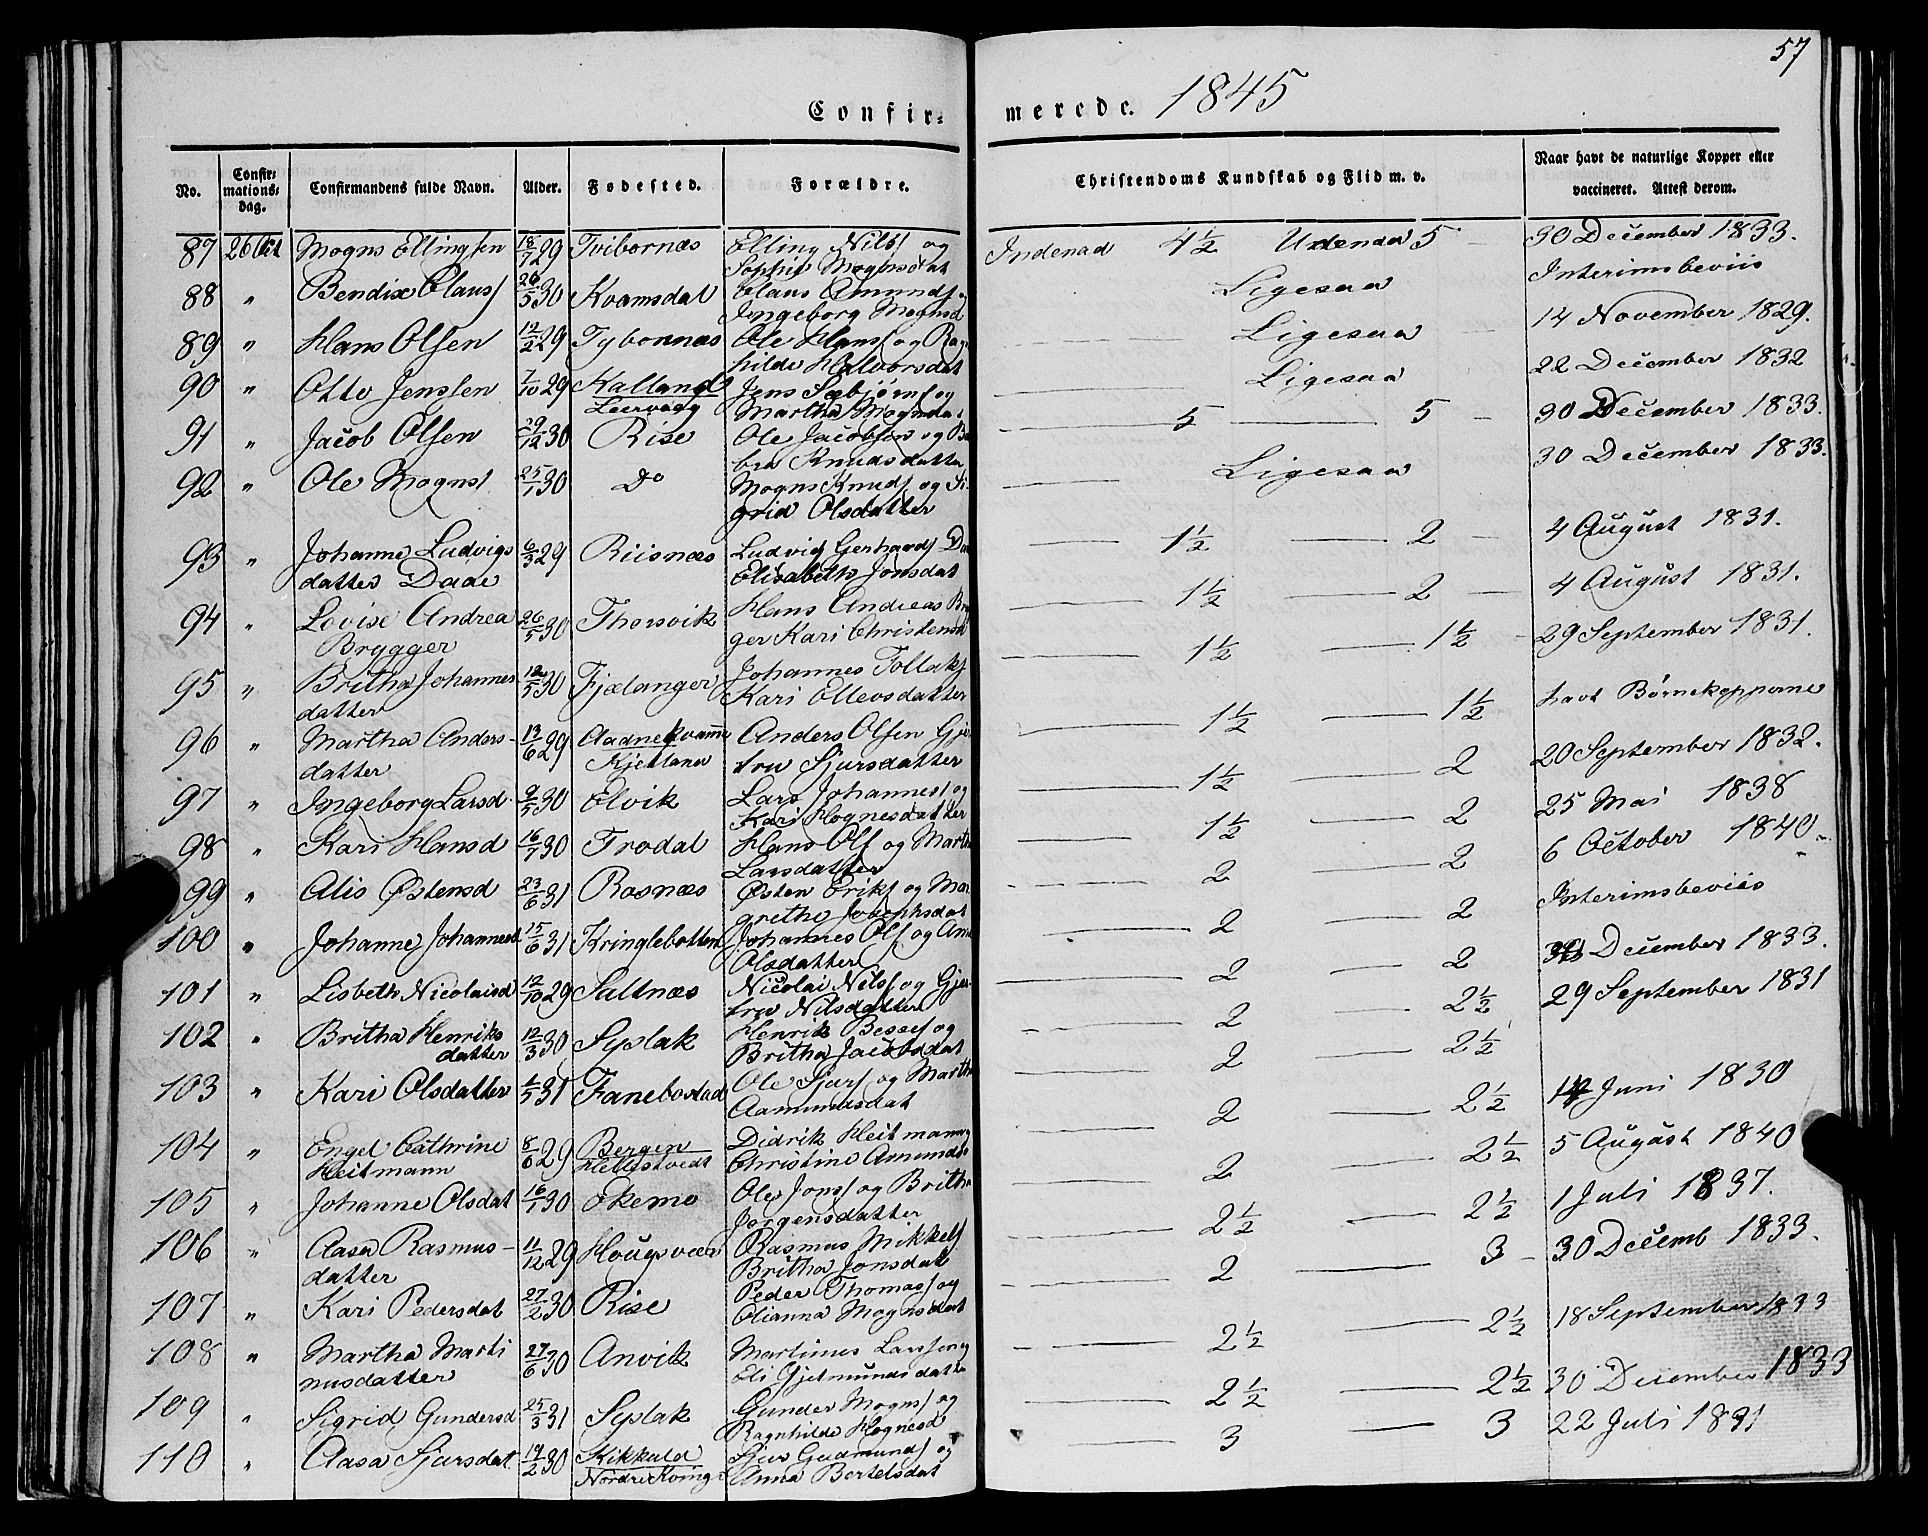 57
Confir= merede. 1845
No. Confir=mations=dag. Confirmandens fulde Navn. Alder. Fødested. Forældre. Christendoms Kundskab og Flid m. v. Naar havt de naturlige Kopper eller vaccineret. Attest derom.
87 26 Oct Mogns Ellingsen 18/7 29 Tvibornæs Elling Nils/ og Indenad 4½ Udenad 5 30 December 1833.
Sophie Mognsdat
88 " Bendix Claus/ 26/5 30 Kvamsdal Claus Amunds/ og Ligesaa Interimsbeviis
Ingeborg Mognsd
89 " Hans Olsen 12/2 29 Tybornæs Ole Hans/ og Rag Ligesaa 14 November 1829.
hilde Halvorsdat
90 " Otto Jenssen 7/10 29 Kalland Jens Sæbjørns/ og Ligesaa 22 December 1832
Leervaag Martha Mognsda
91 " Jacob Olsen 29/12 30 Rise Ole Jacobsen og 5 5 30 December 1833.
Knudsdatter
92 " Ole Mogns/ 25/1 30 Do Mogns Knuds/ og Si- Ligesaa 30 December 1833.
grid Olsdatter
93 " Johanne Ludvigs 6/3 29 Riisnæs Ludvig Gerhards/ 1½ 2 4 August 1831.
datter Daae Elisabeth Jonsdat
94 " Lovise Andrea 26/5 30 Thorsvik Hans Andreas 1½ 2 4 August 1831.
Brygger ger Kari Christensd
95 " Britha Johannes 12/5 30 Fjælanger Johannes Tollaks/ 1½ 1½ 29 September 1831.
datter Kari Ellevsdatter
96 " Martha Anders- 13/6 29 Aadnekvamme Anders Olsen Gjer 1½ 1½ havt Børnekopperne
datter Kjetland tru Sjursdatter
97 " Ingeborg Larsd 9/5 30 Elvik Lars Johannes/ og 1½ 2 20 September 1832.
Kari Hognesdatter
98 " Kari Hansd 16/7 30 Frodal Hans Ols/ og Marth 1½ 2 25 Mai 1838
Larsdatter
99 " Alis Østensd 23/6 31 Rosnæs Østen Eriks/ og Mar 2 2 6 October 1840
grethe Josephsdat
100 " Johanne Johannesd 15/6 31 Kringlebotten Johannes Ols/ og An 2 2 Interimsbeviis
Olsdatter
101 " Lisbeth Nicolaisd 12/10 29 Saltnæs Nicolai Nils/ og Gjer 2 2 December 1833.
tru Nilsdatter
102 " Britha Henriks 12/3 30 Syslak Henrik Besses/ og 2 2½ 29 September 1831
datter Britha Jacobsdat
103 " Kari Olsdatter 31 Fanebostad Ole Sjurs/ og Marth 2 2½
Aamundsdat
104 " Engel Cathrine 8/6 29 Bergen Didrik Heitmann og 2 2½ 14 Juni 1830
Heitmann Hellistvedt Christine Amunds
105 " Johanne Olsdat 16/1 30 Ekemo Ole Jons/ og Brith 2 2½ 5 August 1840
Jørgensdatter
106 " Aasa Rasmus- 11/12 29 Hougsvær Rasmus Mikkels/ 2½ 2½ 1 Juli 1837.
datter Britha Jonsdat
107 " Kari Pedersdat 27/2 30 Rise Peder Thomas/ og 2 3 30 Decemb 1833.
Olianna Mognsdat
108 " Martha Marti 27/6 30 Anvik Martinus Larssen og 2½ 2½ 18 September 1833
nusdatter Eli Gjetmundsdatte
109 " Sigrid Gundersd 25/3 31 Syslak Gunder Mogns/ og 2½ 2½ 30 December 1833
Ragnhilde Hognesd
110 " Aasa Sjursdat 14/2 30 Kikkuld Sjur Gudmunds/ og 3 3 22 Juli 1831
Nordre Kvinge Anna Bertelsdat